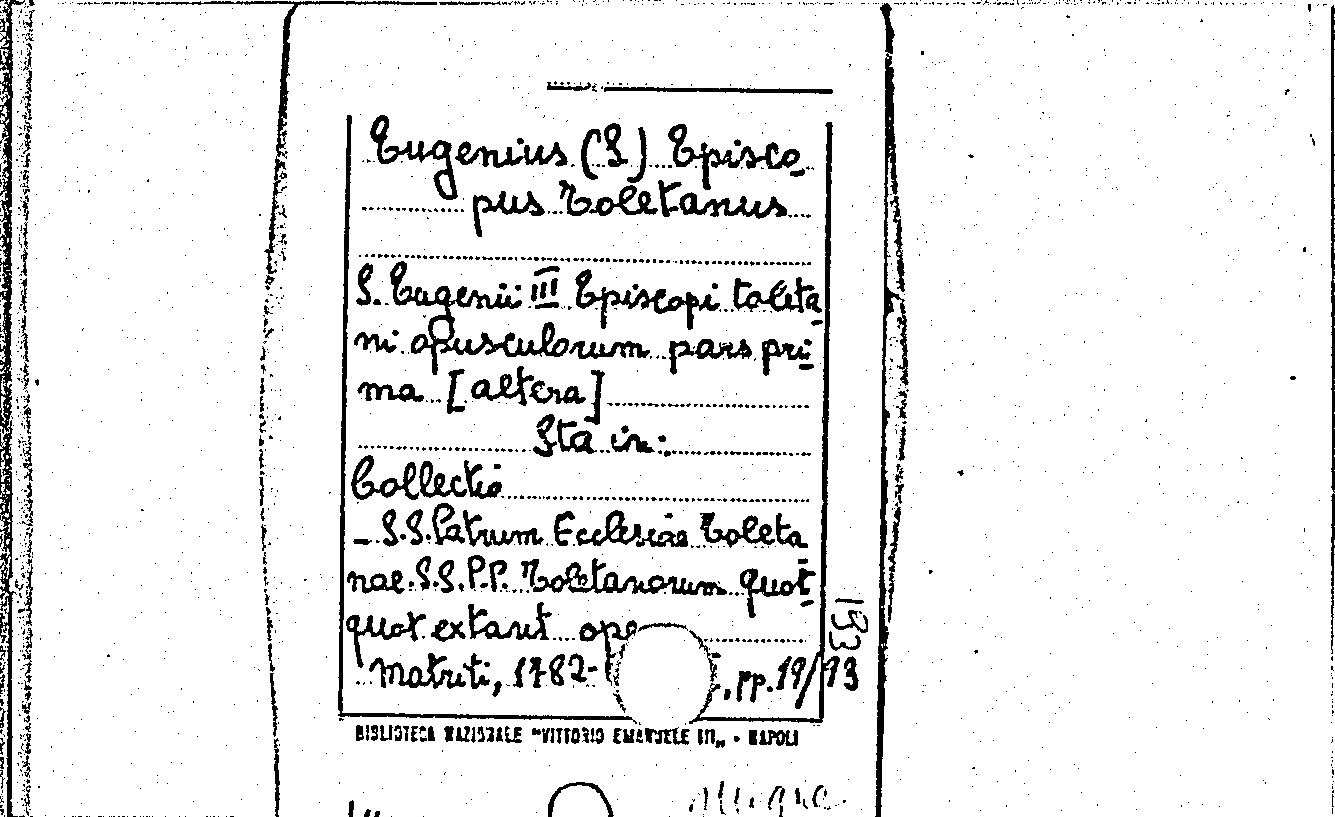 Eugenius (S) Episco
pus Toletanus
S. Eugenii III Episcopi toleta
ni opusculorum pars pri
ma [altera]
Sta in:
Collectio
- S.S. Patrum Ecclesiae Toleta
nae. S.S. P.P. Toletanorum quot
quot extant ope
Matriti, 1782- , pp. 19/93
133
BIBLIOTECA NAZIONALE "VITTORIO EMANUELE III" - NAPOLI